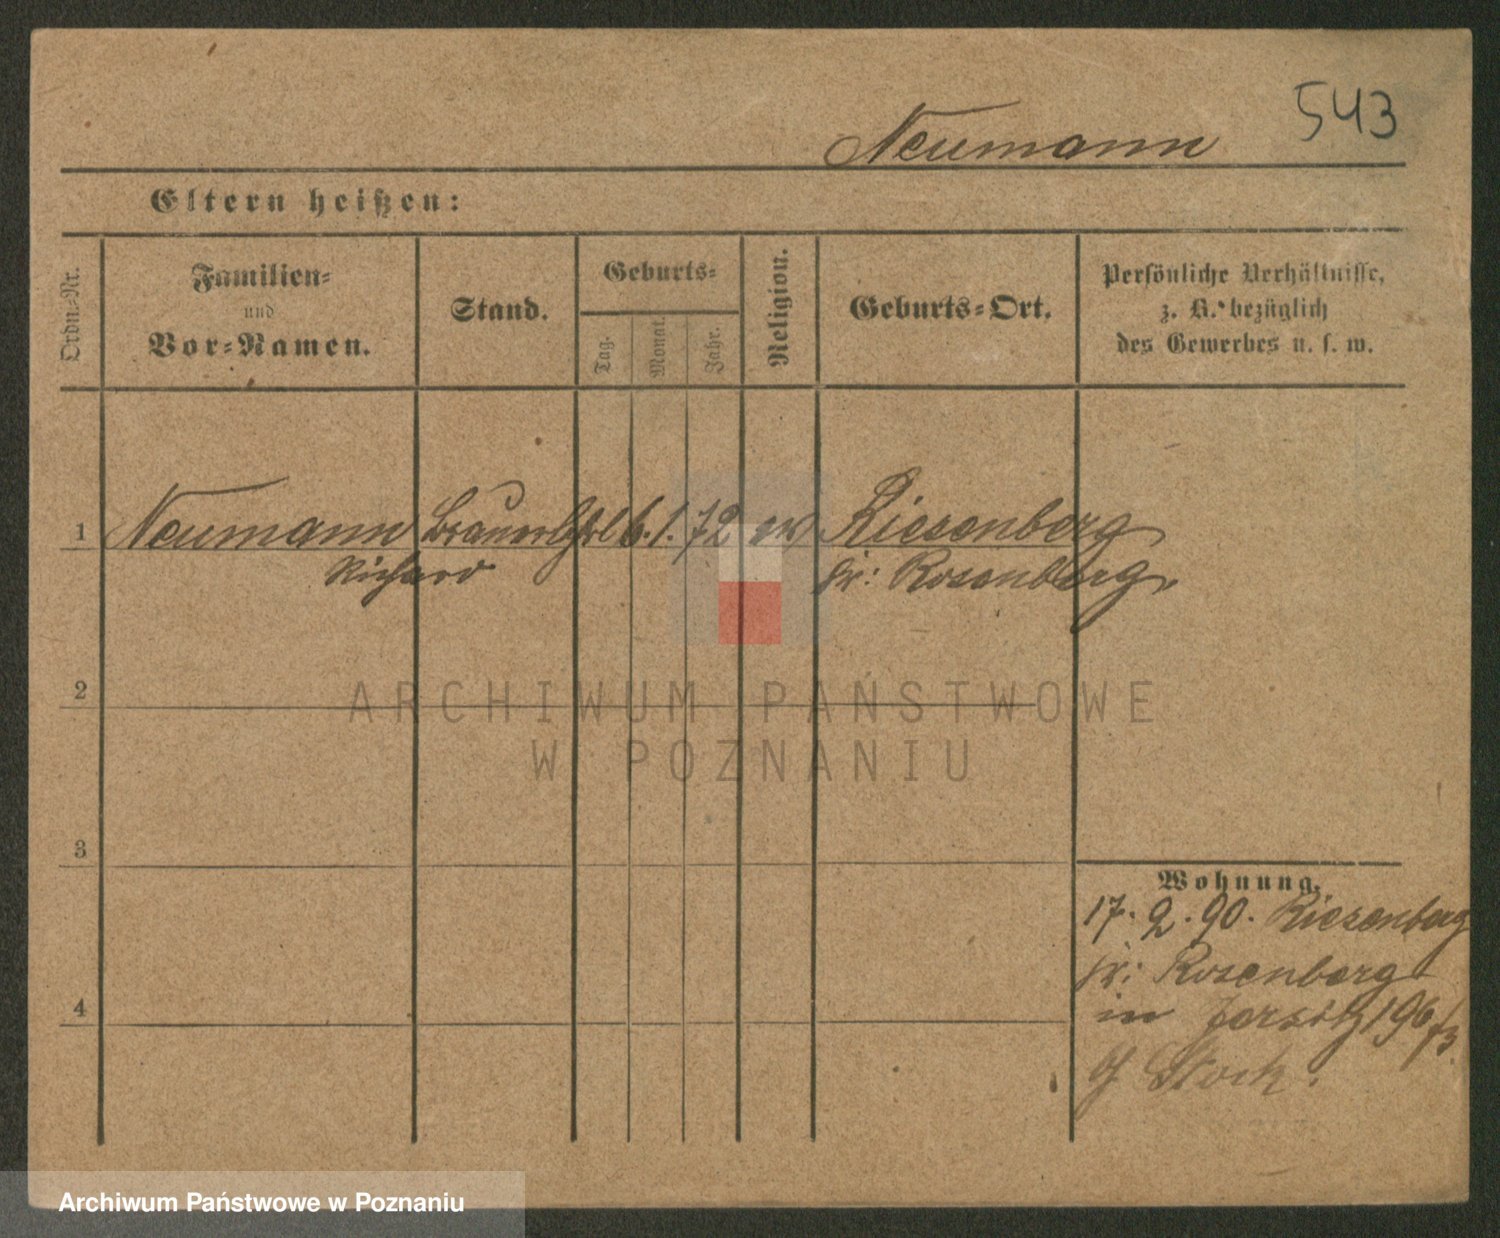 543
Neumann
Eltern heißen:
Ordn.-Nr.
Familien-
und
Vor-Namen.
Stand.
Geburts-
Tag.
Monat.
Jahr.
Religion.
Geburts-Ort.
Persönliche Verhältnisse,
z. B. bezüglich
des Gewerbes u. s. w.
1 Neumann 6. 1. 72 Riesenberg
Richard Kr: Rosenberg
2
ARCHIWUM PAŃSTWOWE
W POZNANIU
3
Wohnung.
17. 2. 90. Riesenberg
Kr: Rosenberg
in Jersitz 196/3.
Stock.
4
Archiwum Państwowe w Poznaniu